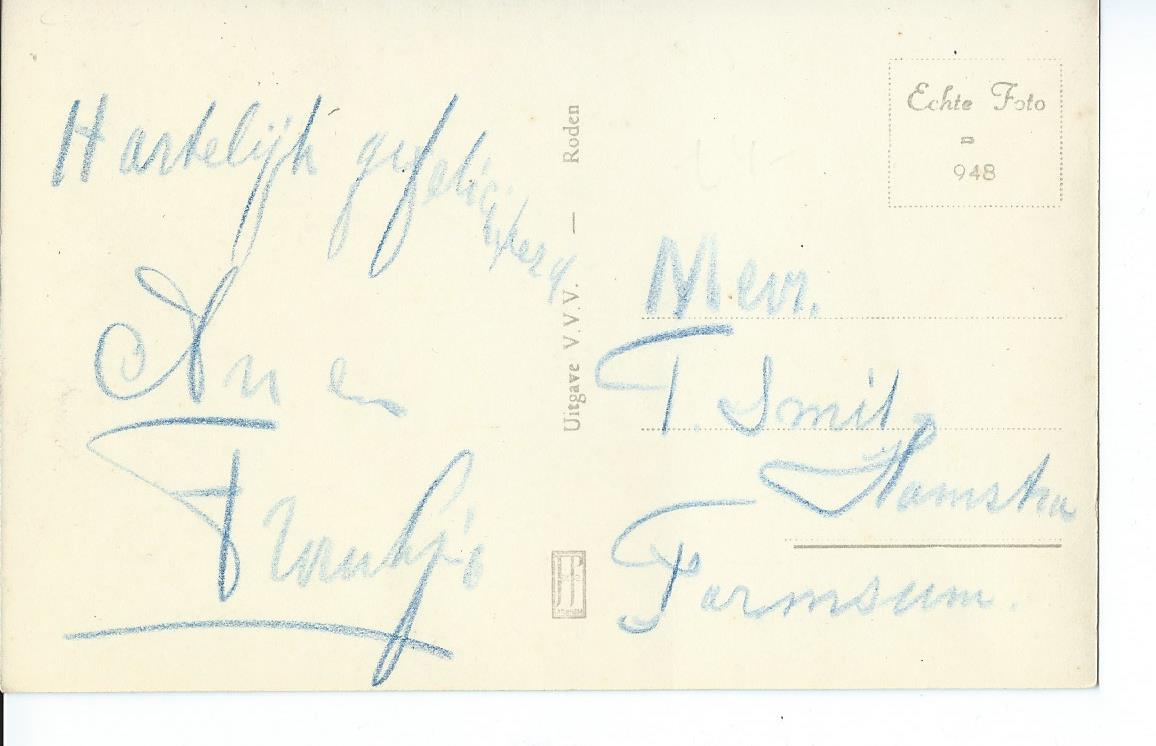 Hartelijk gefeliciteerd
An en
Uitgave V.V.V. — Roden
Echte Foto
948
Mevr.
T. Smit
Farmsum.